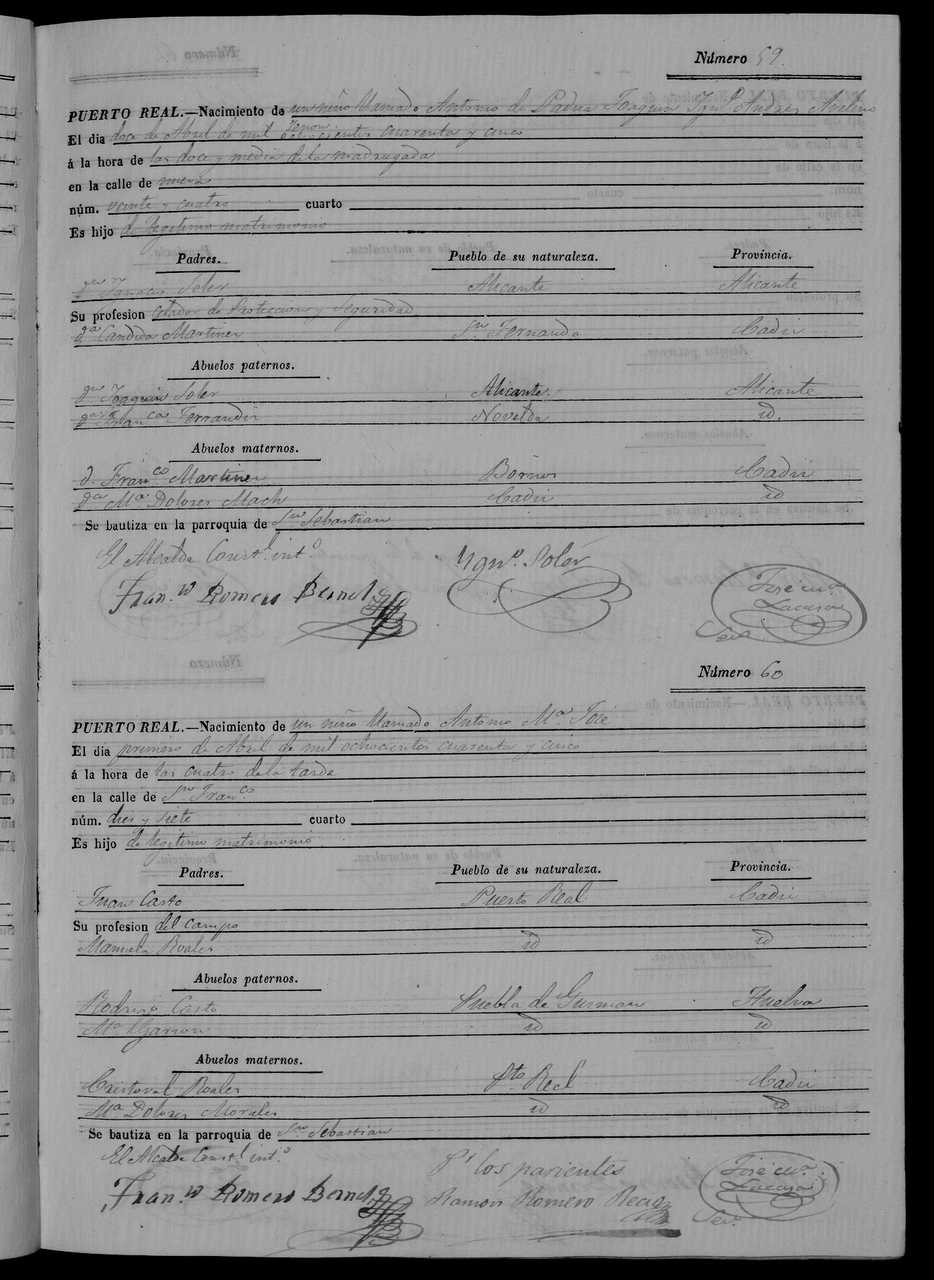 Número 59.
PUERTO REAL.—Nacimiento de un niño llamado Antonio de Padua Joaquin Ygn.º Andres Avelino
El dia doce de Abril de mil ochocientos cuarenta y cinco
á la hora de las doce y media de la madrugada
en la calle de nueva
núm. veinte y cuatro cuarto
Es hijo de legitimo matrimonio
Padres. Pueblo de su naturaleza. Provincia.
Ignacio Soler Alicante Alicante
Su profesion celador de Proteccion y Seguridad
d.ª Candida Martinez S.n Fernando Cadiz
Abuelos paternos.
d.n Joaquin Soler Alicante Alicante
d.ª Fran.ca Ferrandiz Novelda id.
Abuelos maternos.
d. Fran.co Martinez Bornos Cadiz
d.ª M.ª Dolores Mach Cadiz id
Se bautiza en la parroquia de S.n Sebastian
El Alcalde Const.l int.º
Fran.co Romero Bernal
Ygn.º Soler
José M.ª
Lacasa
Sec.
Número 60
PUERTO REAL.—Nacimiento de un niño llamado Antonio M.ª José
El dia primero de Abril de mil ochocientos cuarenta y cinco
á la hora de las cuatro de la tarde
en la calle de S.n Fran.co
núm. diez y siete cuarto
Es hijo de legitimo matrimonio
Padres. Pueblo de su naturaleza. Provincia.
Juan Casto Puerto Real Cadiz
Su profesion del campo
Manuela Roales id id
Abuelos paternos.
Rodrigo Casto Puebla de Gusman Huelva
M.ª Garson id id
Abuelos maternos.
Cristoval Roales Pto Real Cadiz
M.ª Dolores Morales id id
Se bautiza en la parroquia de S.n Sebastian
El Alcalde Const.l int.º
Fran.co Romero Bernal
P.r los parientes
Ramon Romero Recio
José M.ª
Lacasa
Sec.